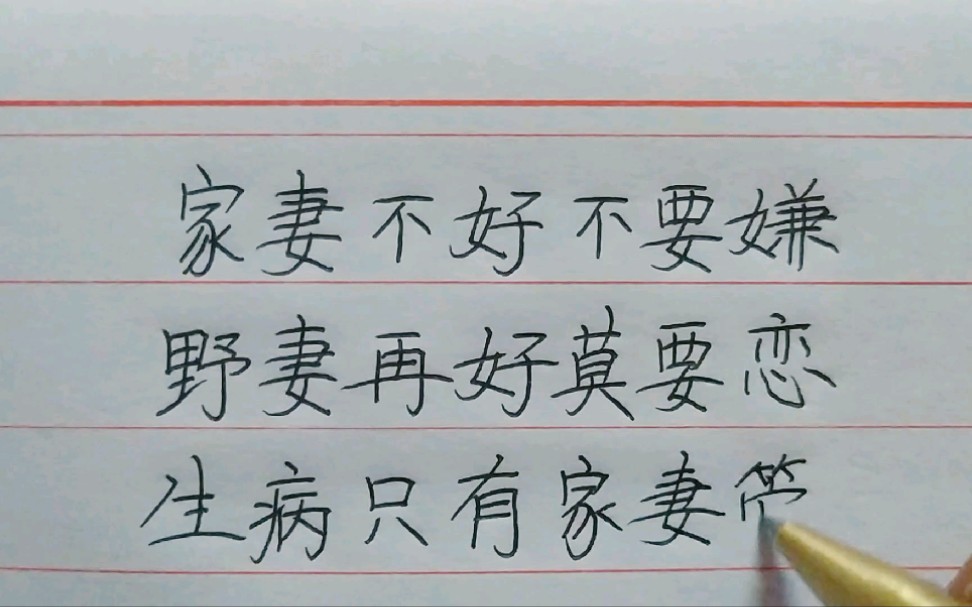 家妻不好不要嫌
野妻再好莫要恋
生病只有家妻